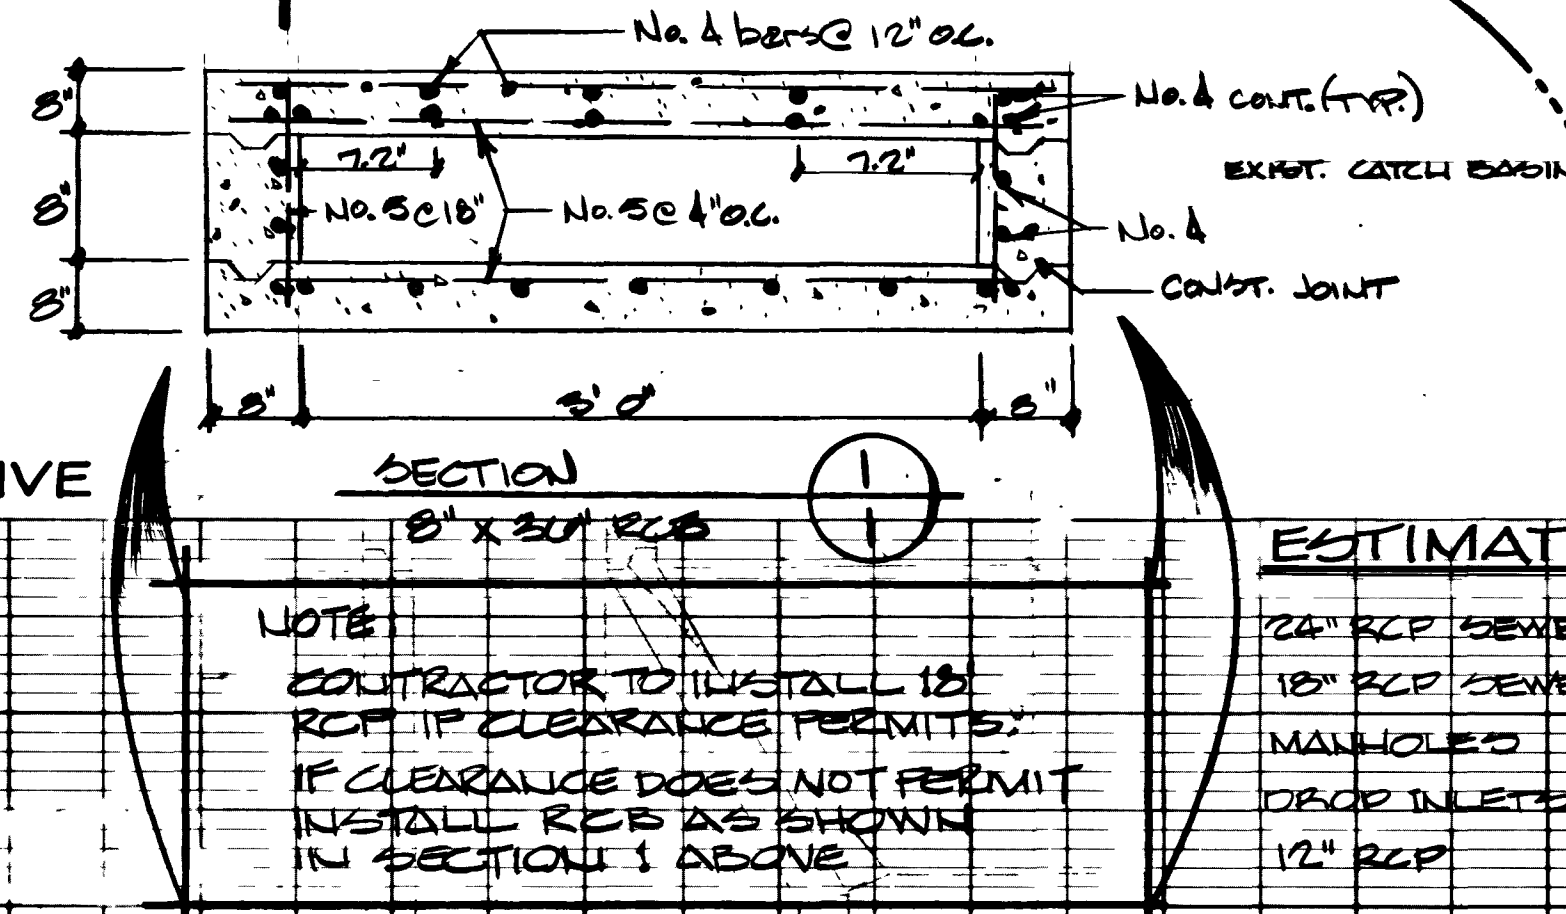 No. 4 bars @ 12" o.c.
8"
No. 4 CONT. (TYP.)
7.2"
7.2"
EXIST. CATCH BASIN
8"
No. 5 @ 18"
No. 5 @ 4" o.c.
No. 4
8"
CONST. JOINT
8"
3' 0"
8"
IVE
SECTION
1
1
8" X 36" RCB
ESTIMAT
NOTE:
CONTRACTOR TO INSTALL 18"
RCP IF CLEARANCE PERMITS.
IF CLEARANCE DOES NOT PERMIT
INSTALL RCB AS SHOWN
IN SECTION 1 ABOVE
24" RCP SEWE
18" RCP SEWE
MANHOLES
DROP INLETS
12" RCP